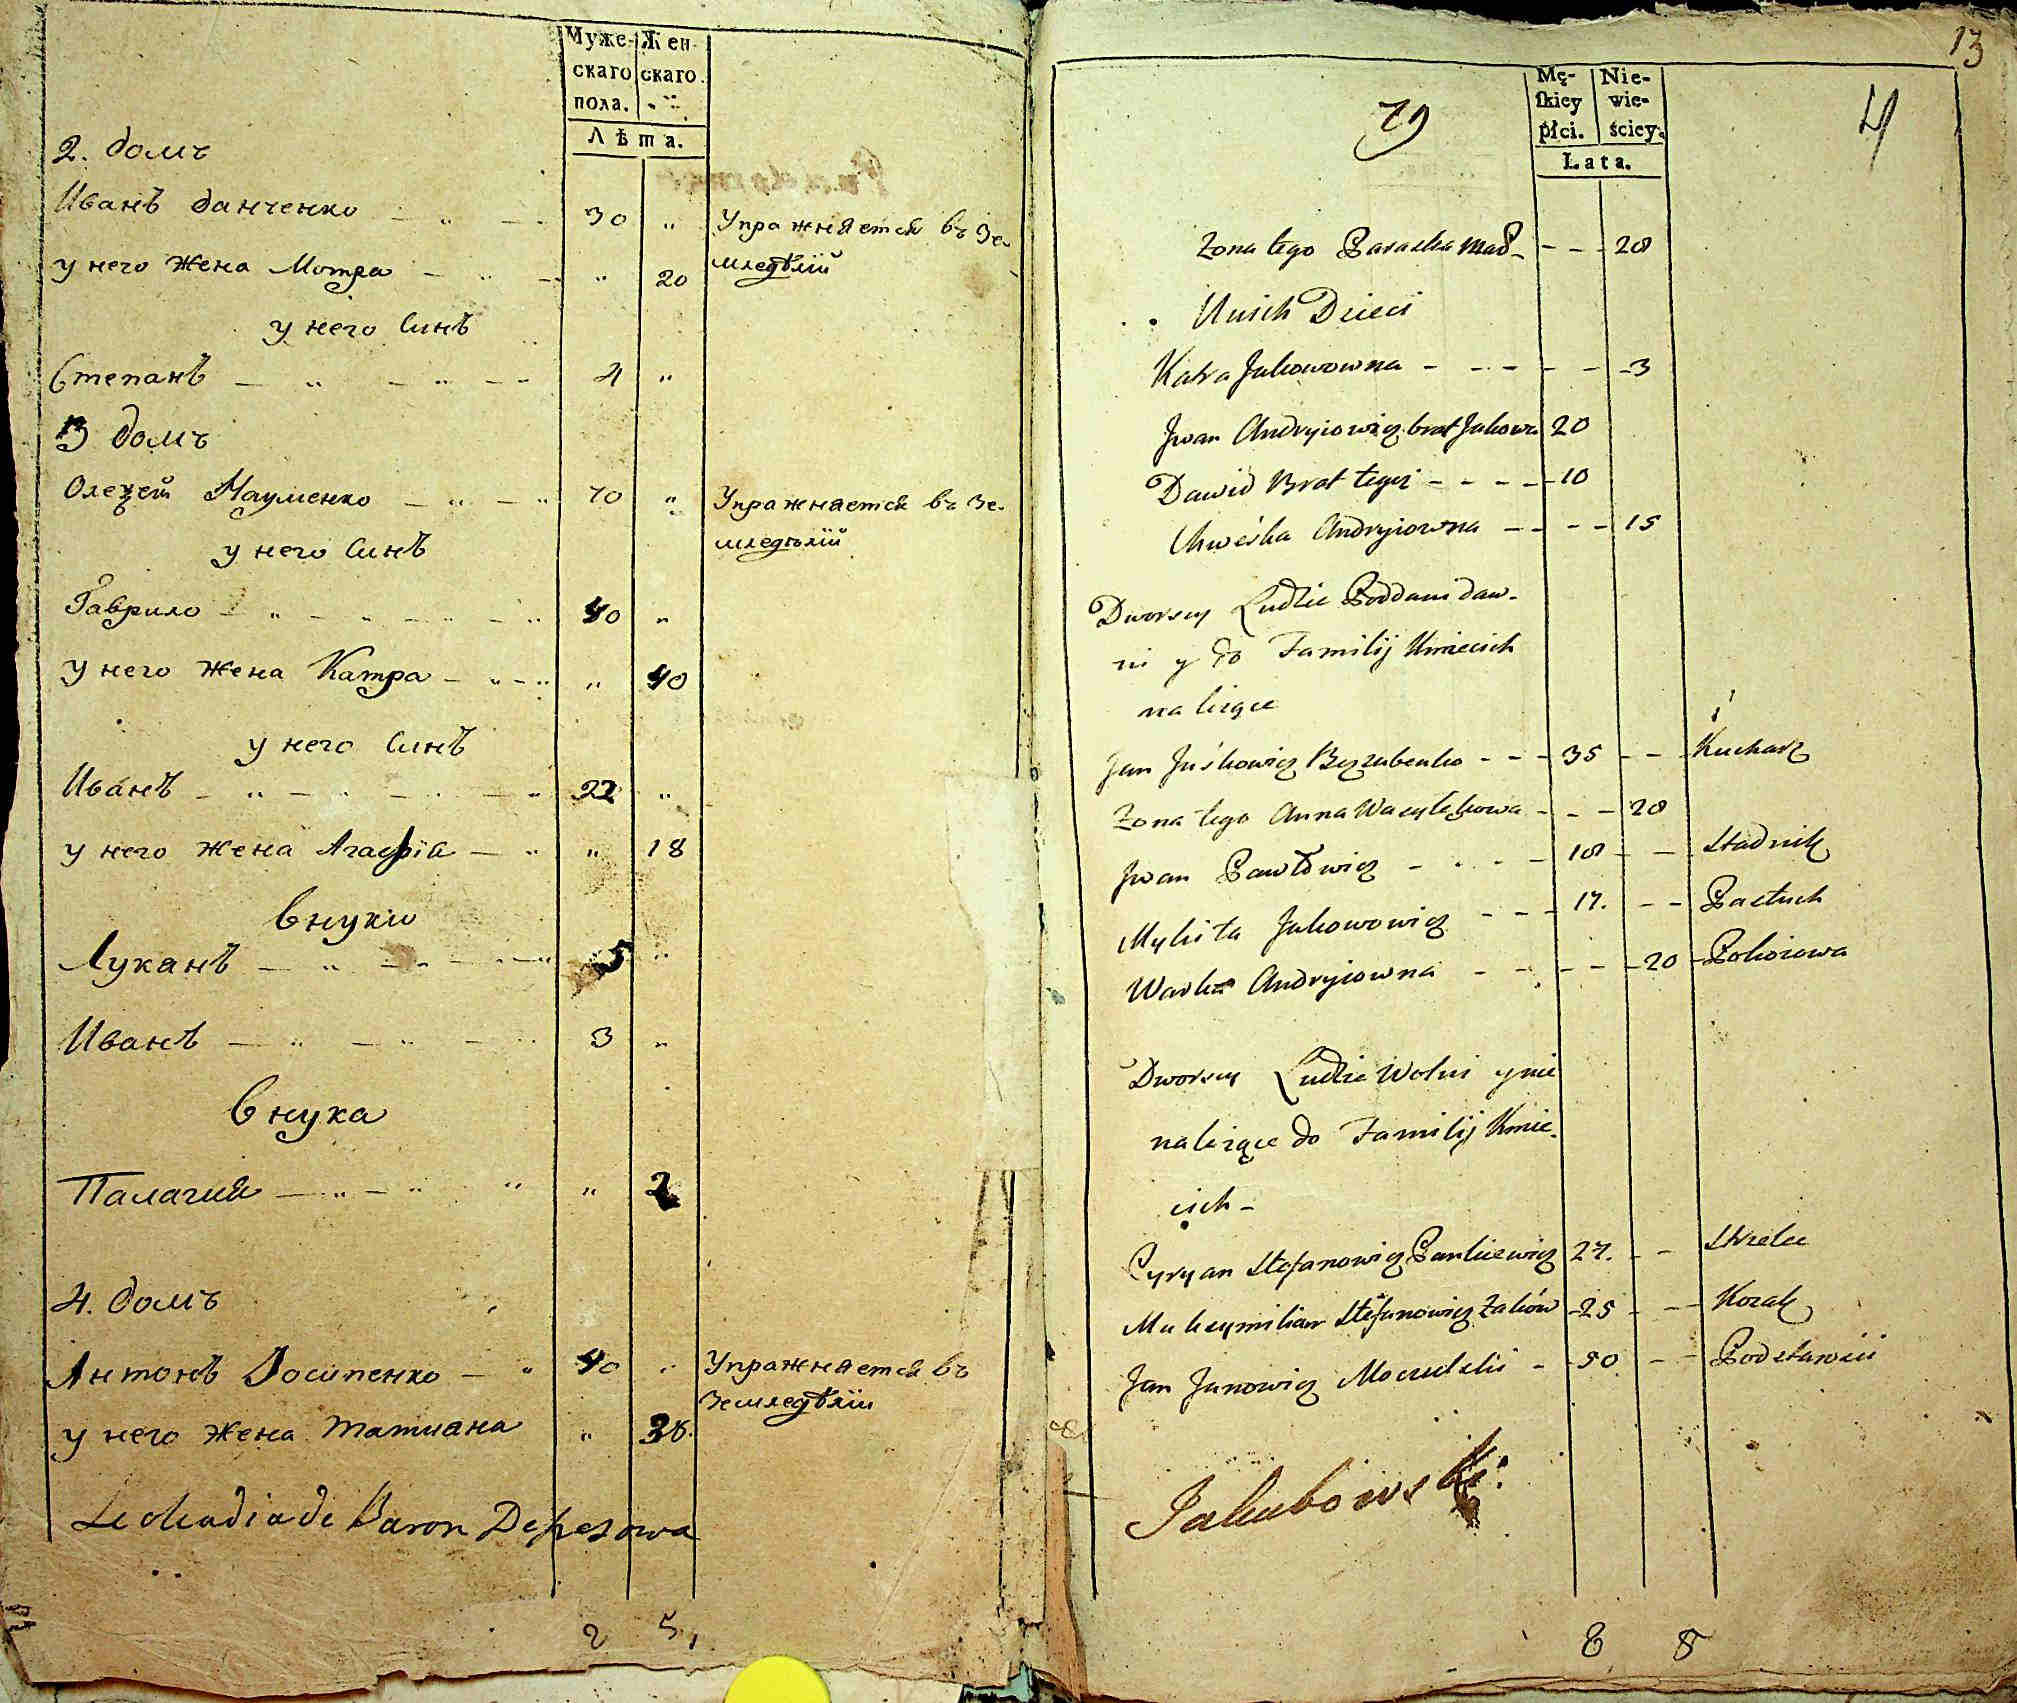 Муже-
скаго
пола.
Жен-
скаго
Лѣта.
2. домъ
Иванъ данченко 30 „ Упражняется въ Зе-
у него жена Мотра „ 20 мледѣлїй
у него Синъ
Степанъ 4 „
3 домъ
Олекѣй Науменко 70 „ Упражняется въ Зе-
у него Синъ мледѣлїй
Гаврило 40 „
у него жена Катра „ 40
у него Синъ
Иванъ 22 „
у него жена Агафїя „ 18
внуки
Луканъ 5 „
Иванъ 3 „
внука
Палагия „ 2
4. домъ
Антонъ Восипенко 40 „ Упражняется въ
у него жена татиана „ 36. Земледѣлїи
Baron
2 5
13
79
4
Mę-
ſkiey
płci.
Nie-
wie-
ściey.
Lata.
Zona tego Paraska 28
Unich Dzieci
Katra Jakowowna 3
Jwan Andryiowicz brat Jakowa 20
Dawid Brat tegoż 10
Chweśka Andryiowna 15
Dworscy Ludzie Poddani daw-
ni y do Familij Kmiecich
należące
Jan Juśkowicz Bezzubenko 35 Kucharz
Zona tego Anna Wasylykowa 28
Jwan Pawłowicz 18 Stadnik
Mykita Jakowowicz 17. Pastuch
Warka Andryiowna 20 Pokoiowa
Dworscy Ludzie Wolni y nie
należące do Familij Kmie-
cich
Cyryan Stefanowicz Pankiewicz 27. Strzelec
Maksymilian Stefanowicz Zaków 25 Kozak
Jan Janowicz Moczulski 50 Podstarości
Jakubowski
8 8